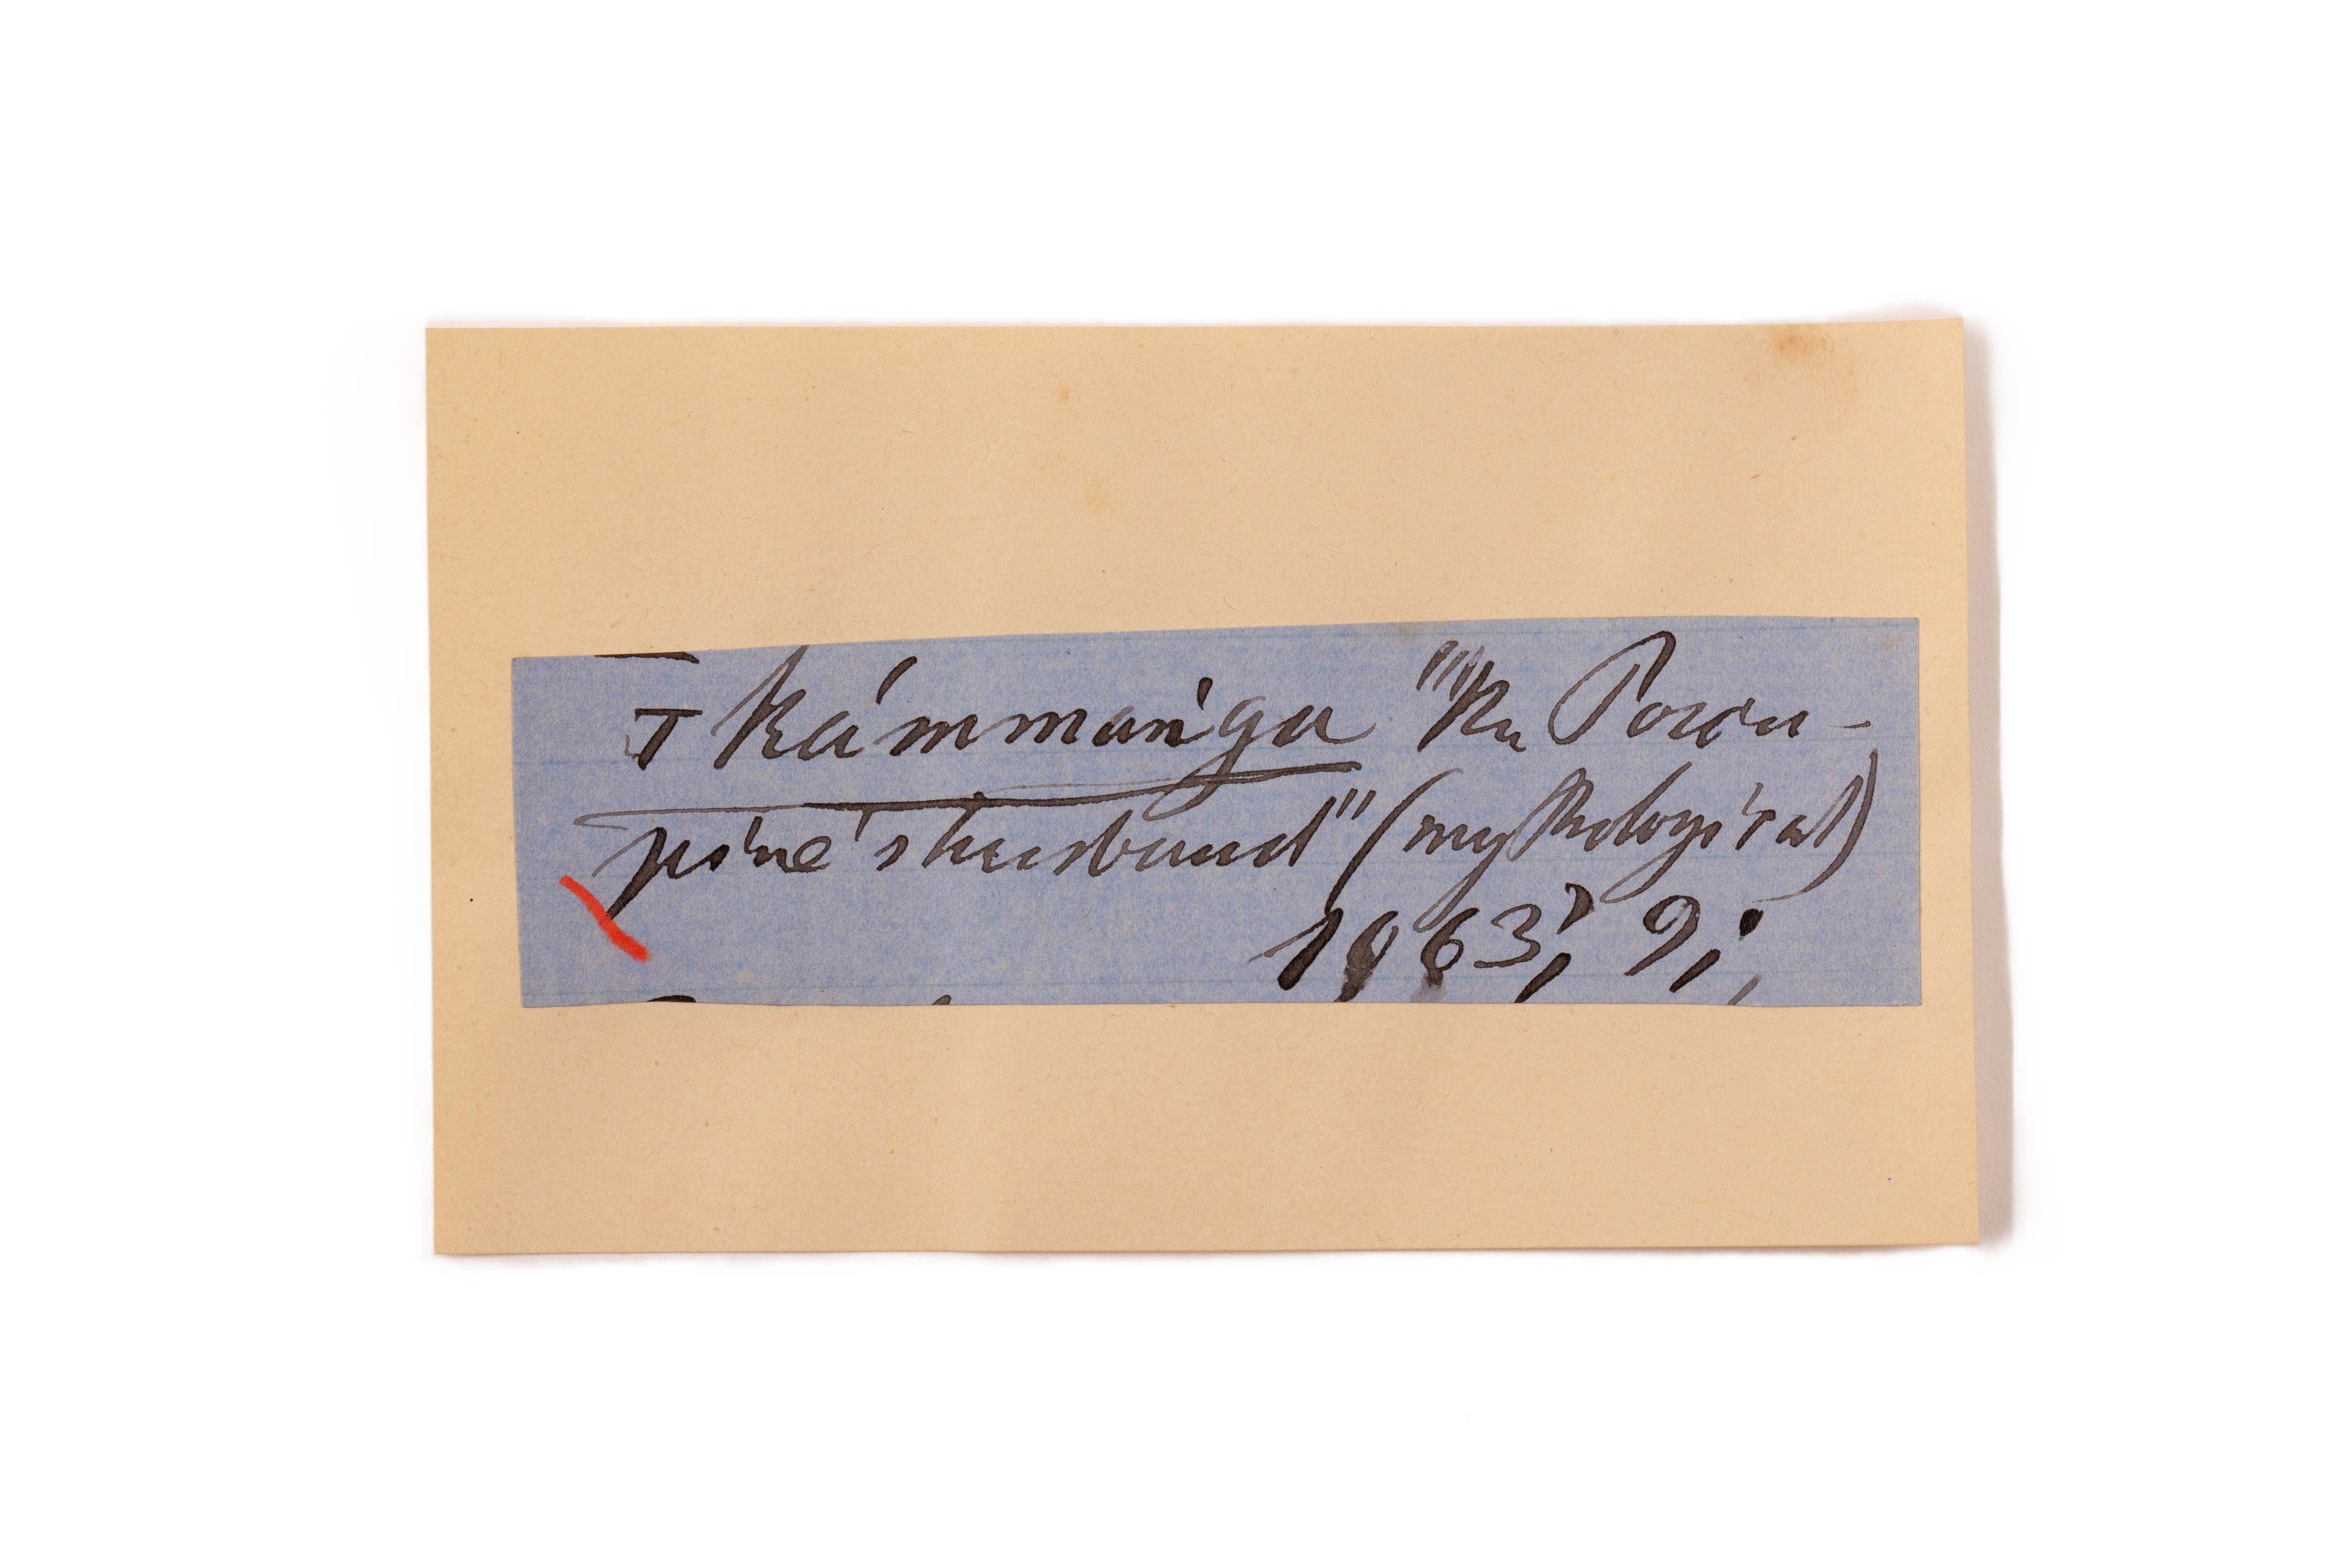 T Kámmaṅga "the Porcu-
pine's husband" (mythological)
1963; 9;